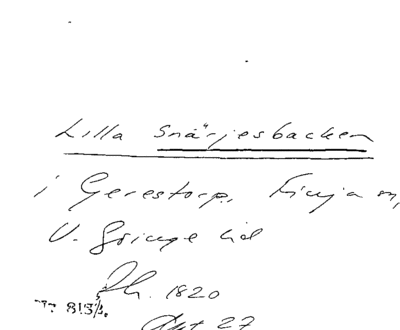 Lilla Snärjesbacken
i Gerestorp, Finja sn,
V. Göinge hd
Rh. 1820
Akt 27